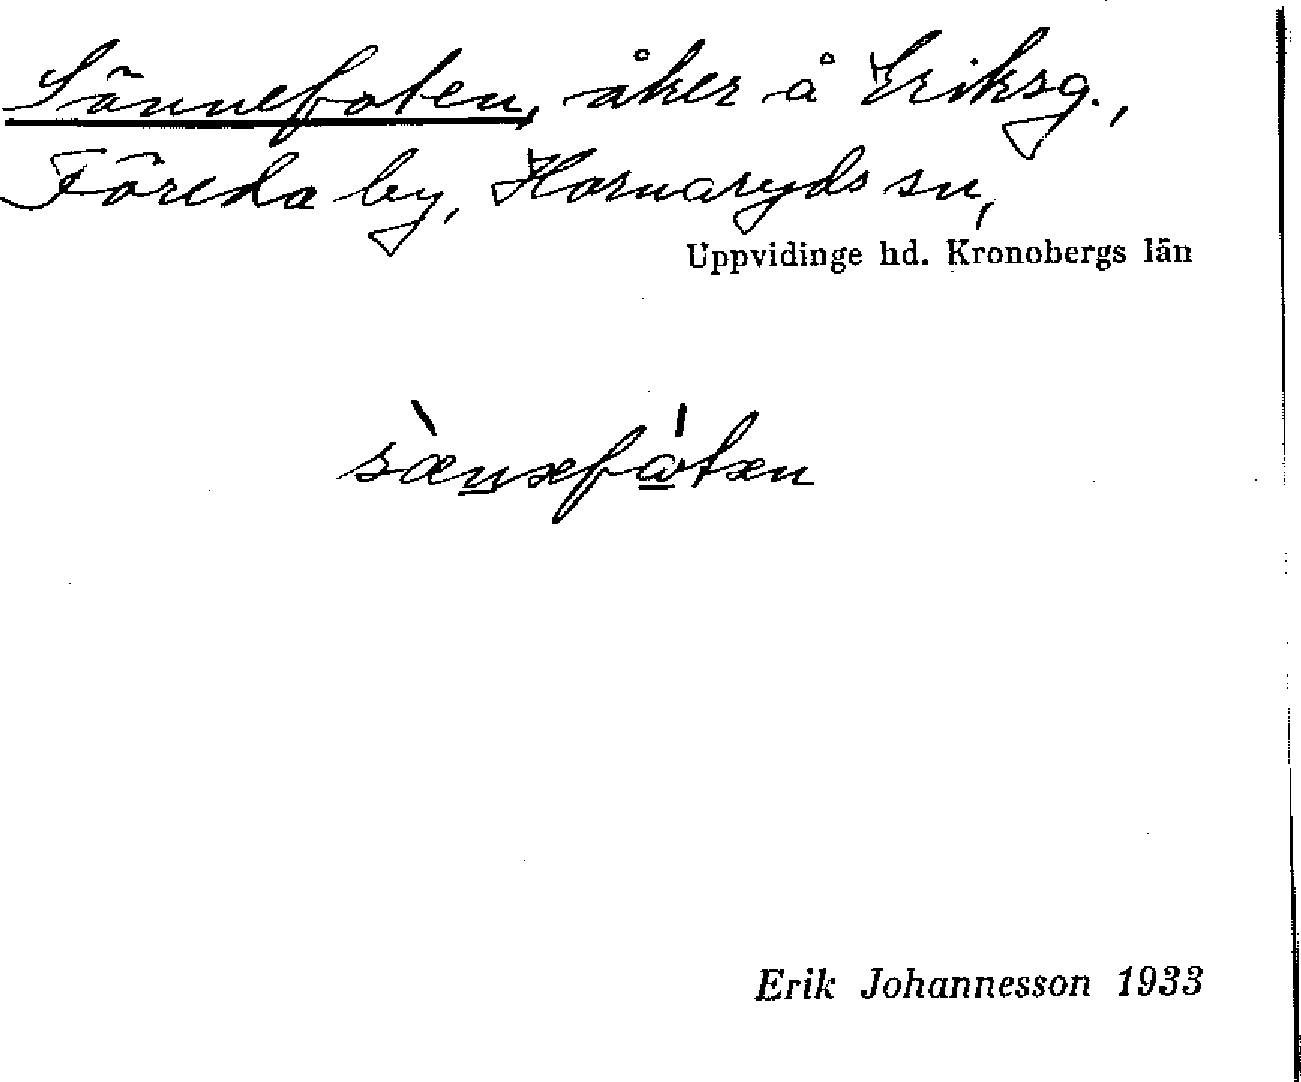 Sännefoten, åker å Eriksg.,
Föreda by, Hornaryds sn,
Uppvidinge hd. Kronobergs län
sæ̀nnæfὼtæn
Erik Johannesson 1933